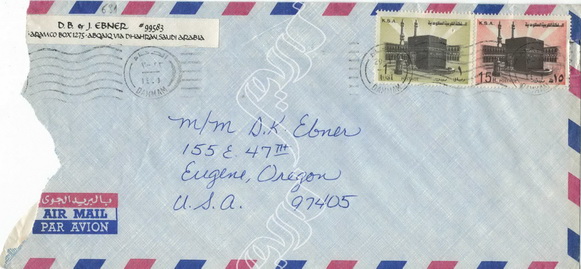 D. B. & J. EBNER #99583
ARAMCO BOX 1275 - ABQAIQ VIA DHAHRAN, SAUDI ARABIA
K.S.A.
K.S.A.
1
15
١٥
DAMMAM
DAMMAM
M/M D.K Ebner
155 E. 47TH
Eugene, Oregon
U.S.A. 97405
بالبريد الجوي
AIR MAIL
PAR AVION